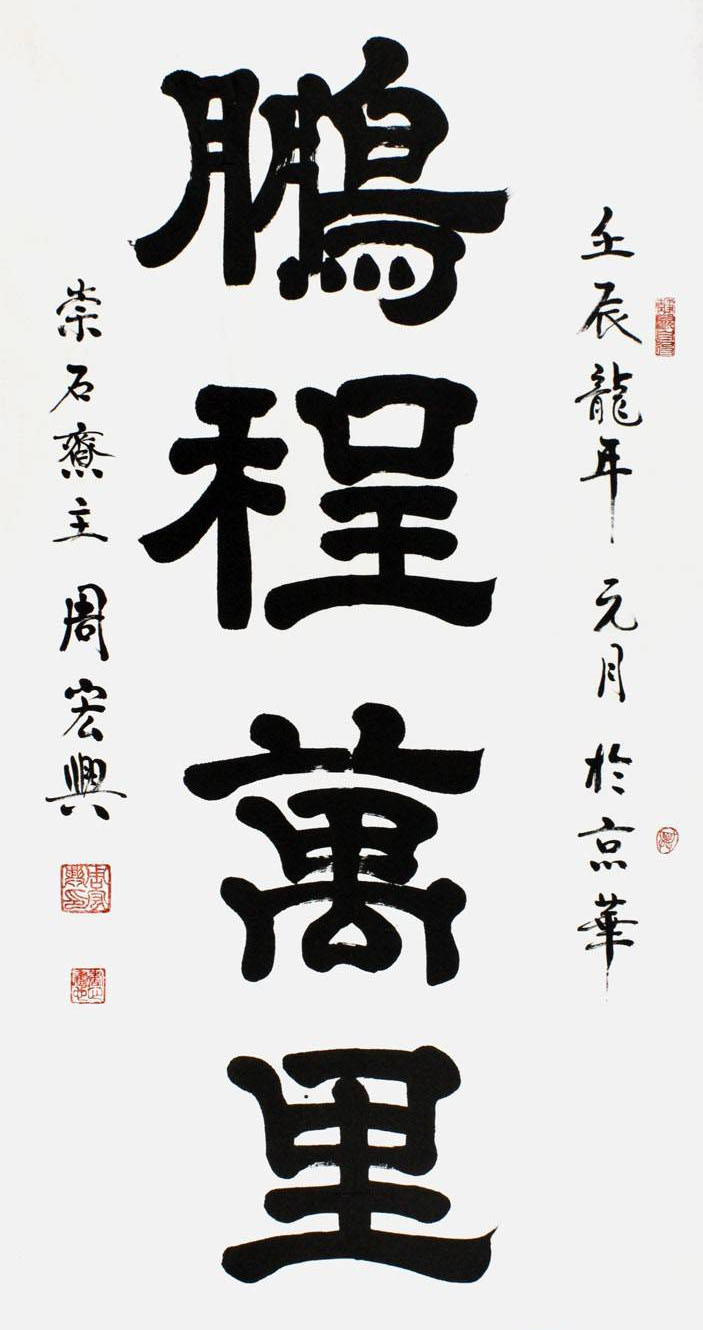 壬辰龍年元月於京華
鵬程萬里
崇石齋主周宏興